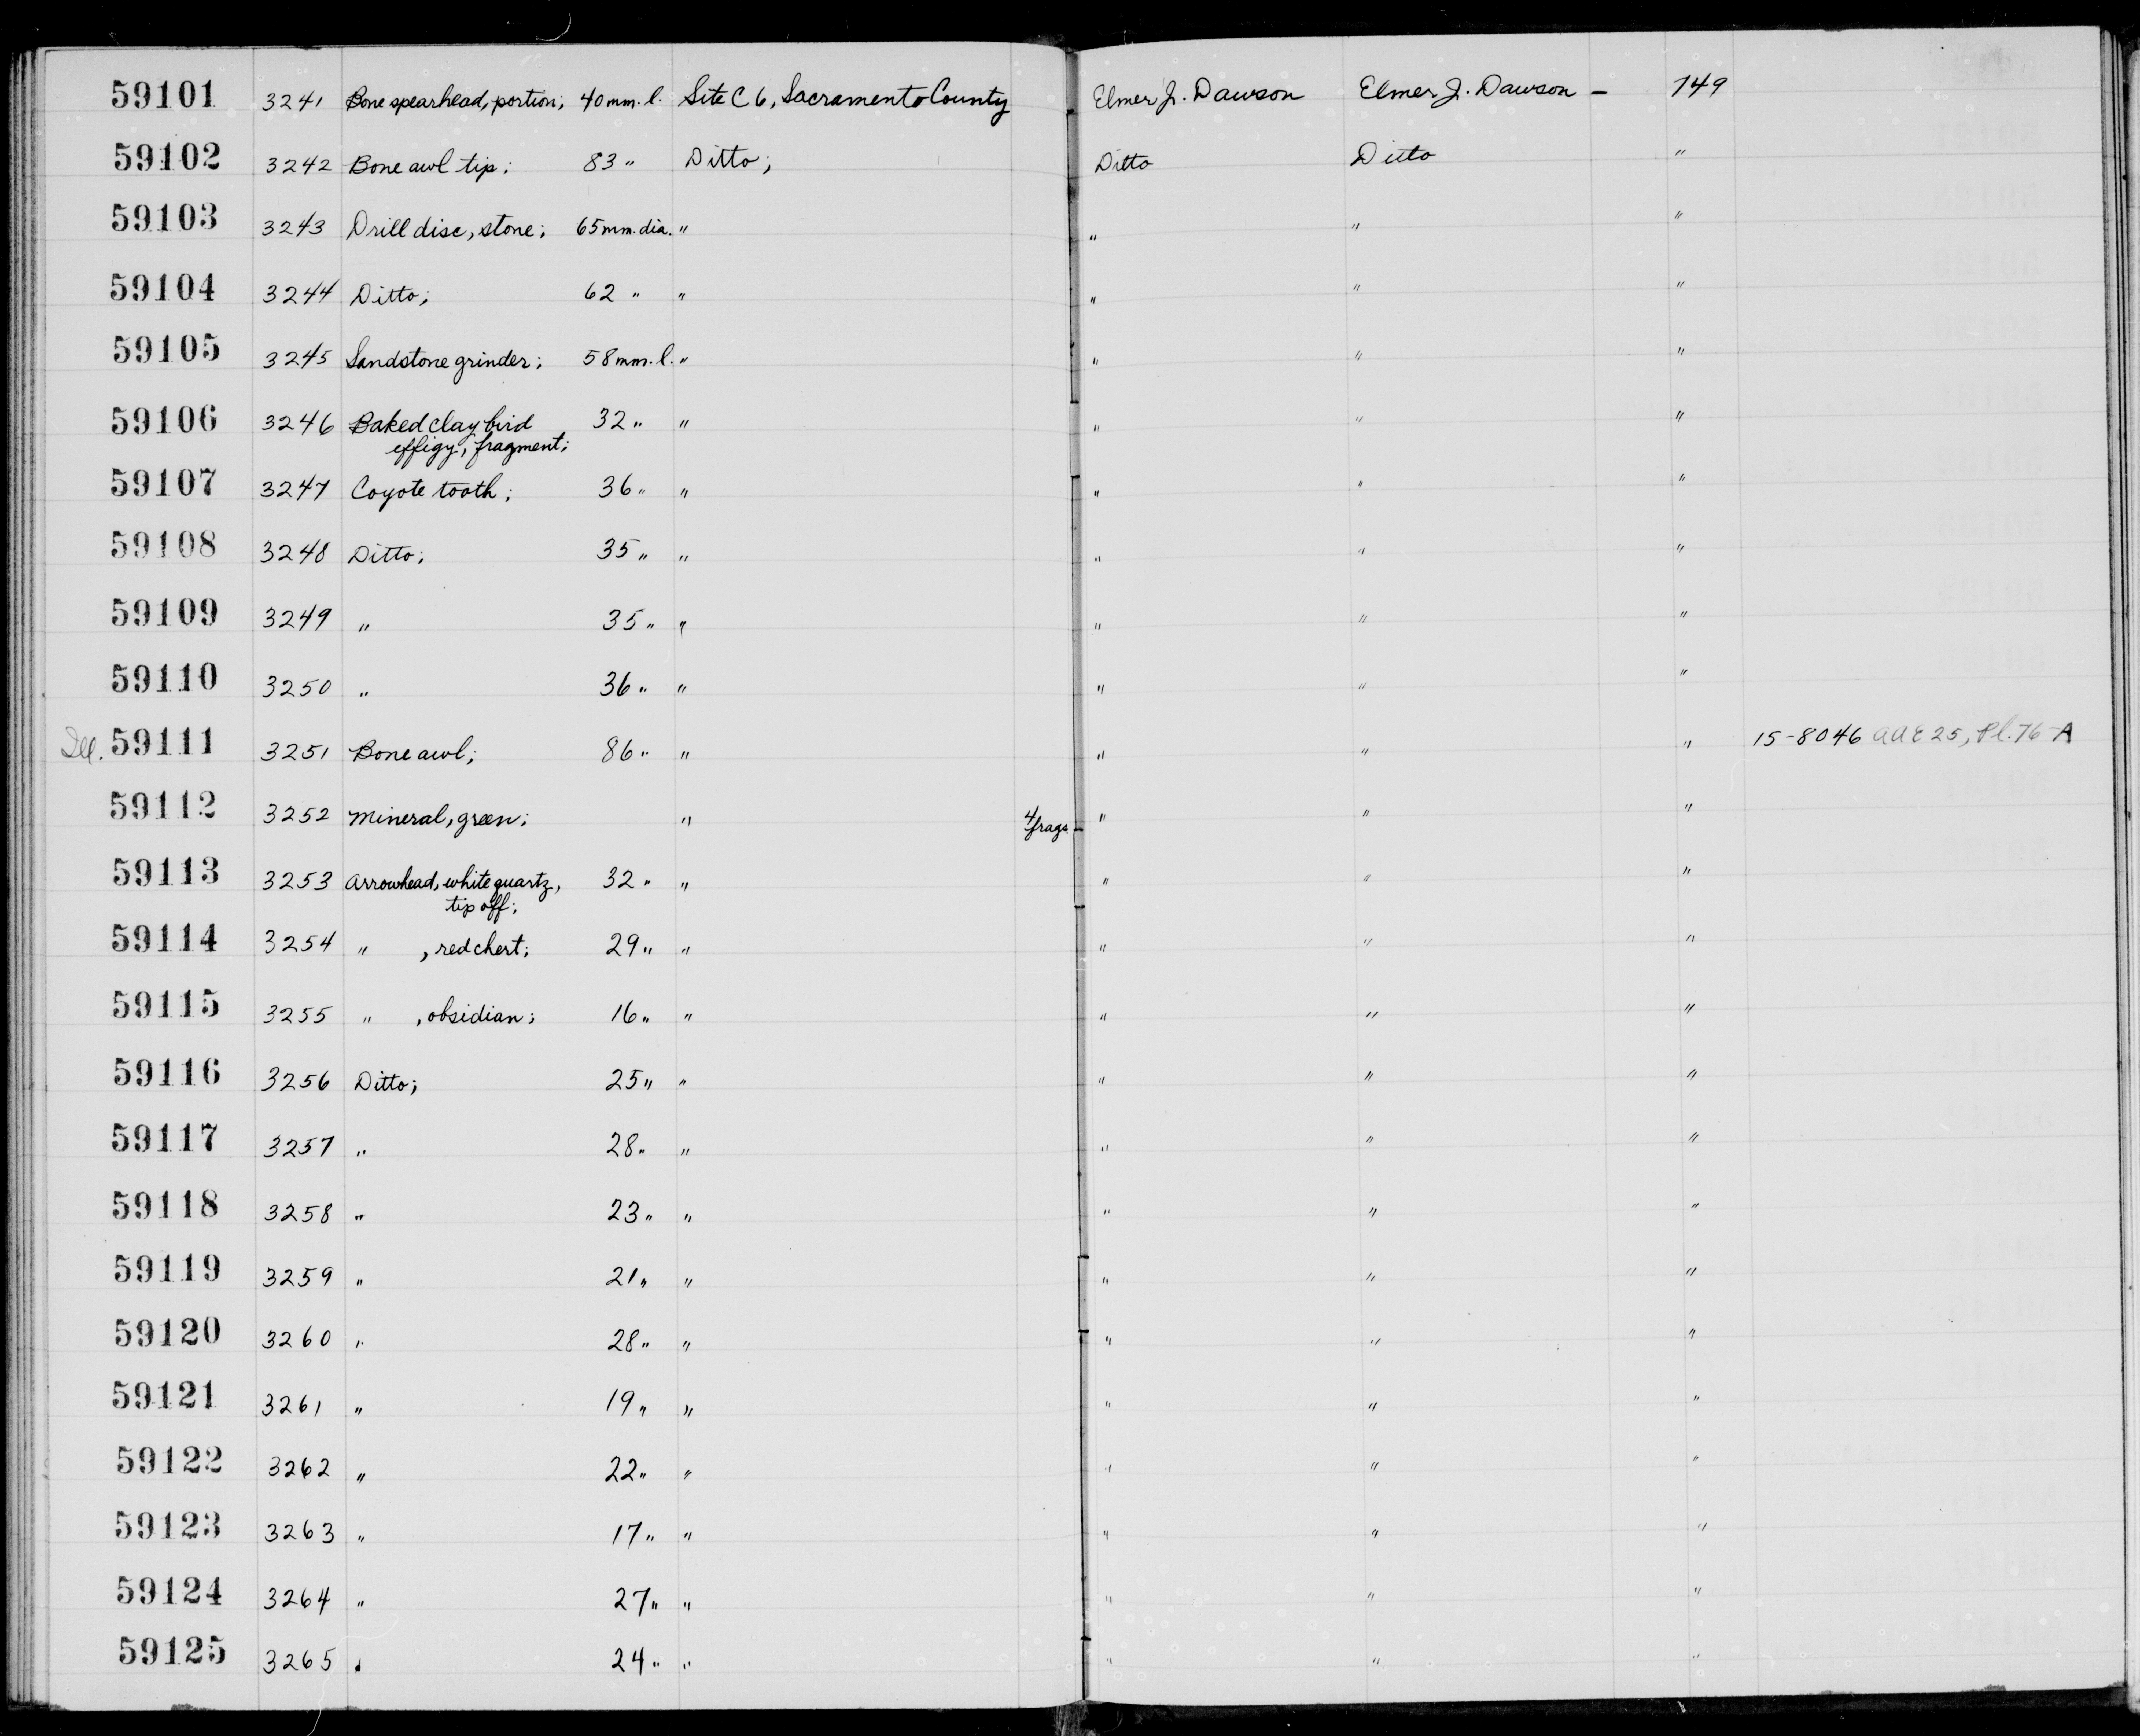 59101 3241 Bone spearhead, portion; 40 mm. l. Site C 6, Sacramento County Elmer J. Dawson Elmer J. Dawson – 149
59102 3242 Bone awl tip; 83 " Ditto; Ditto Ditto "
59103 3243 Drill disc, stone; 65 mm. dia. " " " "
59104 3244 Ditto; 62 " " " " "
59105 3245 Sandstone grinder; 58 mm. l. " " " "
59106 3246 Baked clay bird 32 " " " " "
effigy, fragment;
59107 3247 Coyote tooth; 36 " " " " "
59108 3248 Ditto; 35 " " " " "
59109 3249 " 35 " " " " "
59110 3250 " 36 " " " " "
Ill. 59111 3251 Bone awl; 86 " " " " " 15-8046 AAE 25, Pl. 76-A
59112 3252 Mineral, green; " 4 frags. " " "
59113 3253 Arrowhead, white quartz, 32 " " " " "
tip off;
59114 3254 " , red chert; 29 " " " " "
59115 3255 " , obsidian; 16 " " " " "
59116 3256 Ditto; 25 " " " " "
59117 3257 " 28 " " " " "
59118 3258 " 23 " " " " "
59119 3259 " 21 " " " " "
59120 3260 " 28 " " " " "
59121 3261 " 19 " " " " "
59122 3262 " 22 " " " " "
59123 3263 " 17 " " " " "
59124 3264 " 27 " " " " "
59125 3265 " 24 " " " " "